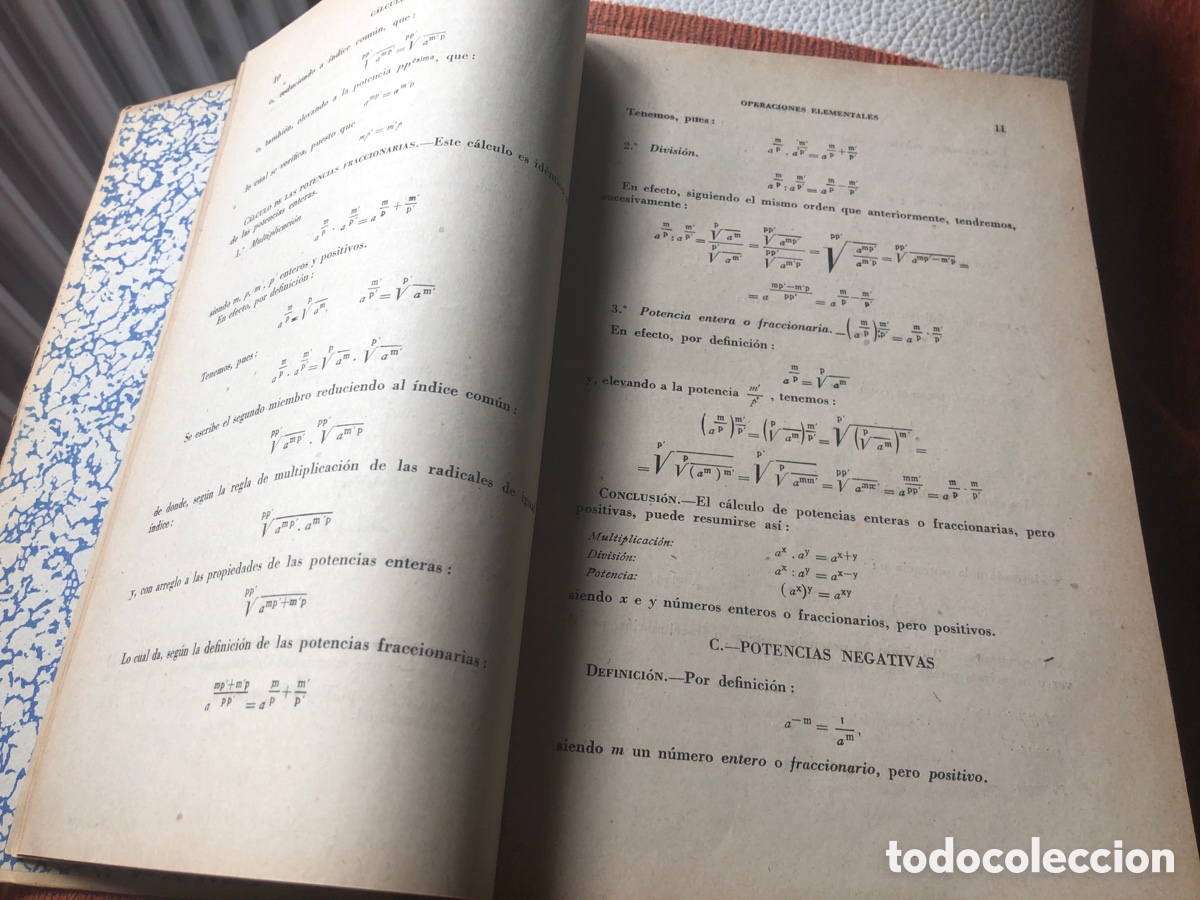 10
CÁLCULO
o, reduciendo a índice común, que:
\sqrt[pp']{a^{mp'}} = \sqrt[pp']{a^{m'p}}
o, también, elevando a la potencia pp'ésima, que:
a^{mp'} = a^{m'p}
lo cual se verifica, puesto que
mp' = m'p
CÁLCULO DE LAS POTENCIAS FRACCIONARIAS.—Este cálculo es
de las potencias enteras.
1.ª Multiplicación
a^{m/p} . a^{m'/p'} = a^{m/p + m'/p'}
siendo m, p, m', p' enteros y positivos.
En efecto, por definición:
a^{m/p} = \sqrt[p]{a^m}, a^{m'/p'} = \sqrt[p']{a^{m'}}
Tenemos, pues:
a^{m/p} . a^{m'/p'} = \sqrt[p]{a^m} . \sqrt[p']{a^{m'}}
Se escribe el segundo miembro reduciendo al índice común:
\sqrt[pp']{a^{mp'}} . \sqrt[pp']{a^{m'p}}
de donde, según la regla de multiplicación de las radicales de
índice:
\sqrt[pp']{a^{mp'} . a^{m'p}}
y, con arreglo a las propiedades de las potencias enteras:
\sqrt[pp']{a^{mp'+m'p}}
Lo cual da, según la definición de las potencias fraccionarias:
a^{(mp'+m'p)/pp'} = a^{m/p + m'/p'}
OPERACIONES ELEMENTALES
11
Tenemos, pues:
a^{m/p} . a^{m'/p'} = a^{m/p + m'/p'}
2.ª División.
a^{m/p} : a^{m'/p'} = a^{m/p − m'/p'}
En efecto, siguiendo el mismo orden que anteriormente, tendremos,
sucesivamente:
a^{m/p} : a^{m'/p'} = \frac{\sqrt[p]{a^m}}{\sqrt[p']{a^{m'}}} = \frac{\sqrt[pp']{a^{mp'}}}{\sqrt[pp']{a^{m'p}}} = \sqrt[pp']{\frac{a^{mp'}}{a^{m'p}}} = \sqrt[pp']{a^{mp'−m'p}} =
= a^{(mp'−m'p)/pp'} = a^{m/p − m'/p'}
3.ª Potencia entera o fraccionaria.—(a^{m/p})^{m'/p'} = a^{m/p · m'/p'}
En efecto, por definición:
a^{m/p} = \sqrt[p]{a^m}
y, elevando a la potencia m'/p', tenemos:
(a^{m/p})^{m'/p'} = (\sqrt[p]{a^m})^{m'/p'} = \sqrt[p']{(\sqrt[p]{a^m})^{m'}} =
= \sqrt[p']{\sqrt[p]{(a^m)^{m'}}} = \sqrt[p']{\sqrt[p]{a^{mm'}}} = \sqrt[pp']{a^{mm'}} = a^{mm'/pp'} = a^{m/p · m'/p'}
CONCLUSIÓN.—El cálculo de potencias enteras o fraccionarias, pero
positivas, puede resumirse así:
Multiplicación: a^x . a^y = a^{x+y}
División: a^x : a^y = a^{x−y}
Potencia: (a^x)^y = a^{xy}
siendo x e y números enteros o fraccionarios, pero positivos.
C.—POTENCIAS NEGATIVAS
DEFINICIÓN.—Por definición:
a^{−m} = \frac{1}{a^m},
siendo m un número entero o fraccionario, pero positivo.
todocoleccion